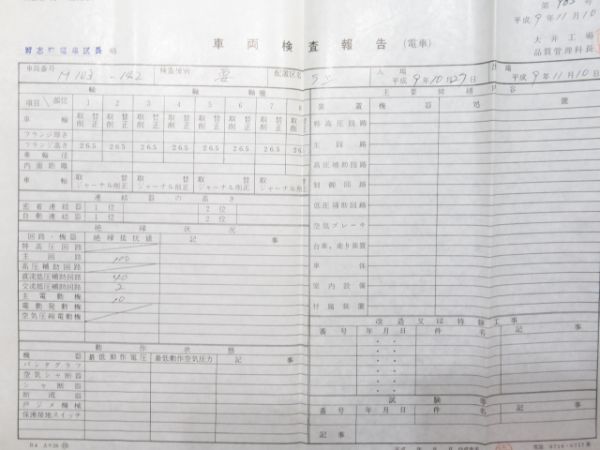 平成 9年11月10
習志野電車区長 殿
車両検査報告(電車)
大井工場
品質管理科長
車両番号 M103-142 検査種別 要 配置区名 入場 平成 9年10月27日 出場 平成 9年11月10日
輪軸 主要機構 内容
項目 部位 1 2 3 4 5 6 7 8 装置 機器 処置
車輪 取替 削正 取替 削正 取替 削正 取替 削正 取替 削正 取替 削正 取替 削正 取替 削正 特高圧回路
フランジ厚さ
フランジ高さ 26.5 26.5 26.5 26.5 26.5 26.5 26.5 26.5 主回路
車輪径 高圧補助回路
内面距離
車軸 取替 ジャーナル削正 取替 ジャーナル削正 取替 ジャーナル削正 取替 ジャーナル削正 制御回路
連結器の高さ 低圧補助回路
密着連結器 1位 2位
自動連結器 1位 2位 空気ブレーキ
絶縁状況
回路・機器 絶縁抵抗値 記事 台車、走り装置
特高圧回路
主回路 100 車体
高圧補助回路
直流低圧補助回路 40 室内設備
交流低圧補助回路 2
主電動機 10 付属装置
電動発電機
空気圧縮電動機 改造又は特修工事
番号 年月日 件名 記事
動作状態
機器 最低動作電圧 最低動作空気圧力 記事
パンタグラフ
空気シャ断器
シャ断器
断流器 試験等
戸ジメ機械 番号 年月日 件名 記事
保護接地スイッチ
記事